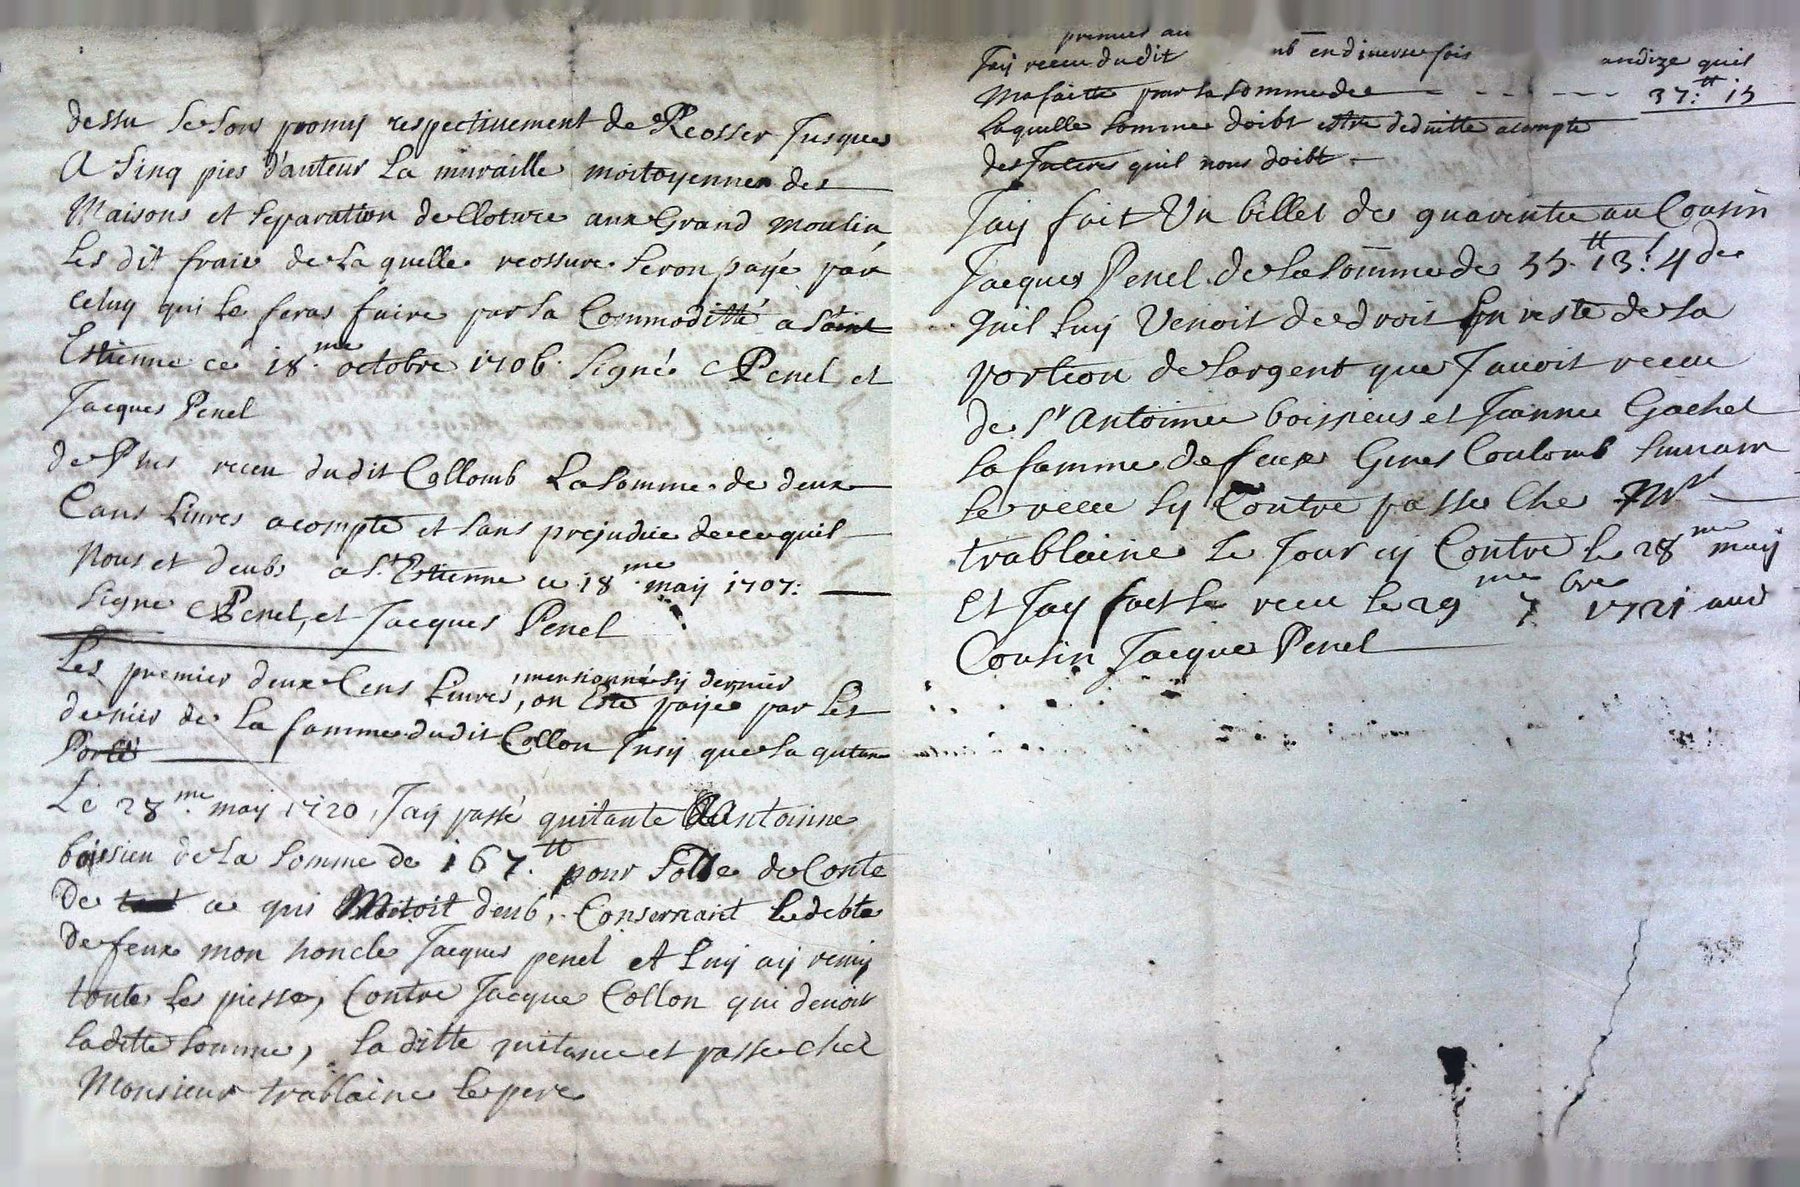 dessu se sont promis respectivement de Reosser Jusques
A sinq pies d'auteur La muraille moitoyenne des
Maisons et separation de Cloture aux Grand moulin
Les dit frais de la quelle reossure seron payé par
celuy qui le feras faire par sa Commoditté a saint
Estienne ce 18.me octobre 1706. Signé CPenel et
Jacques Penel
de Plus receu dudit Collomb La somme de deux
Cans Livres a compte et sans prejudice de ce quil
Nous et deubs a St. Estienne ce 18me may 1707:
Signe CPenel, et Jacques Penel
Les premier deux Cens Livres, mensionné sy dernier
on Esté payée par Les
denier de La famme dudit Collon Insy que la quitance
Porté
Le 28.me may 1720, Jay passé quitante Antoinne
boissieu de la somme de 167.tt pour Solde de Conte
De ce qui Mitoit deub, Consernant le debte
de feux mon honcle Jacques penel et Luy ay remis
toute les piesse, Contre Jacque Collon qui devoit
la ditte somme, La ditte quitance et passe chez
Monsieur trablaine le pere
premier au
Jay receu dudit en diverse fois andize quil
Ma faitte pour la somme de - - - - - 37:tt 15
Laquelle somme doibt estre deduitte acompte
des Interes quil nous doibt
Jay fait Un billet de quarente au Cousin
Jacques Penel de la somme de 35.tt 13.s 4 de
quil luy Venoit de droit En reste de la
portion de Largent que Javoit receu
de Sr Antoinne boissieus et Jeanne Gachet
sa famme de feux Gines Coulomb suivant
le receu sy Contre passe Che Mr
trablaine Le Jour cy Contre le 28me may
Et Jay fait le receu le 29me 7bre 1721 aud
Cousin Jacque Penel